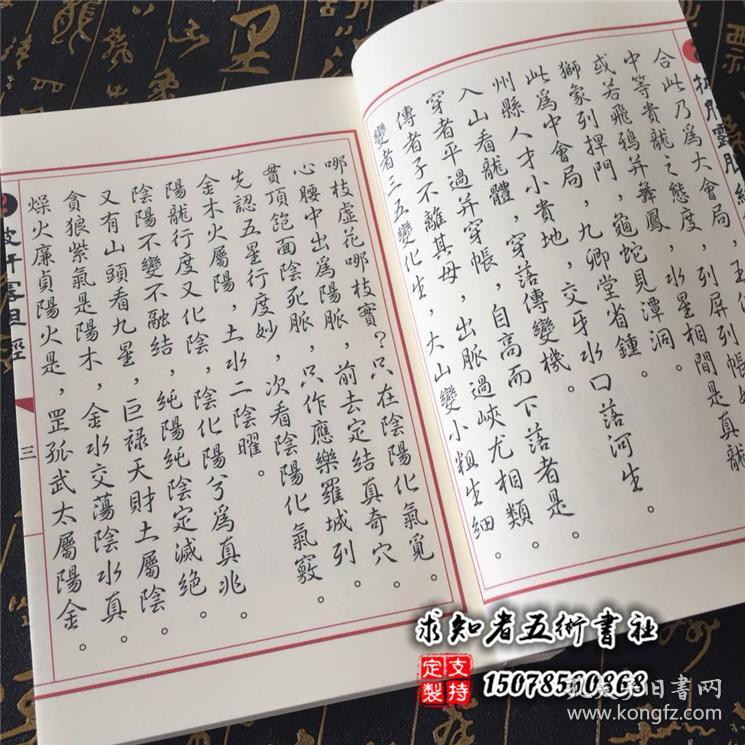 合此乃爲大會局，
中等貴龍之態度，列屏列帳
或若飛鴉并舞鳳，水星相間是真龍
獅象列捍門，龜蛇見潭洞。
此爲中會局，九卿堂省鍾。
州縣人才小貴地，交牙水口落河生。
入山看龍體，穿落傳變機。
穿者平過并穿帳，自高而下落者是。
傳者子不離其母，出脈過峽尤相類。
變者二五變化生，大山變小粗生細。
哪枝虛花哪枝實？只在陰陽化氣覓。
心腰中出爲陽脈，前去定結真奇穴。
貫頂飽面陰死脈，只作應樂羅城列。
先認五星行度妙，次看陰陽化氣竅。
金木火屬陽，土水二陰曜。
陽龍行度又化陰，陰化陽兮爲真兆。
陰陽不變不融結，純陽純陰定滅絕。
又有山頭看九星，巨禄天財土屬陰。
貪狼紫氣是陽木，金水交蕩陰水真。
燥火廉貞陽火是，罡孤武太屬陽金。
三
求知者五術書社
定製 支持 15078510868
孔夫子旧書网
www.kongfz.com